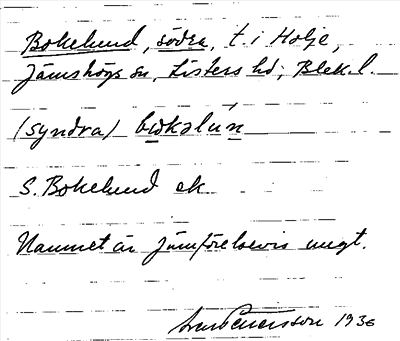 Bokelund, södra, t. i Holje,
Jämshögs sn, Listers hd, Blek. l.
(syndra) bωkəlún
S. Bokelund ek
Namnet är jämförelsevis ungt.
1936